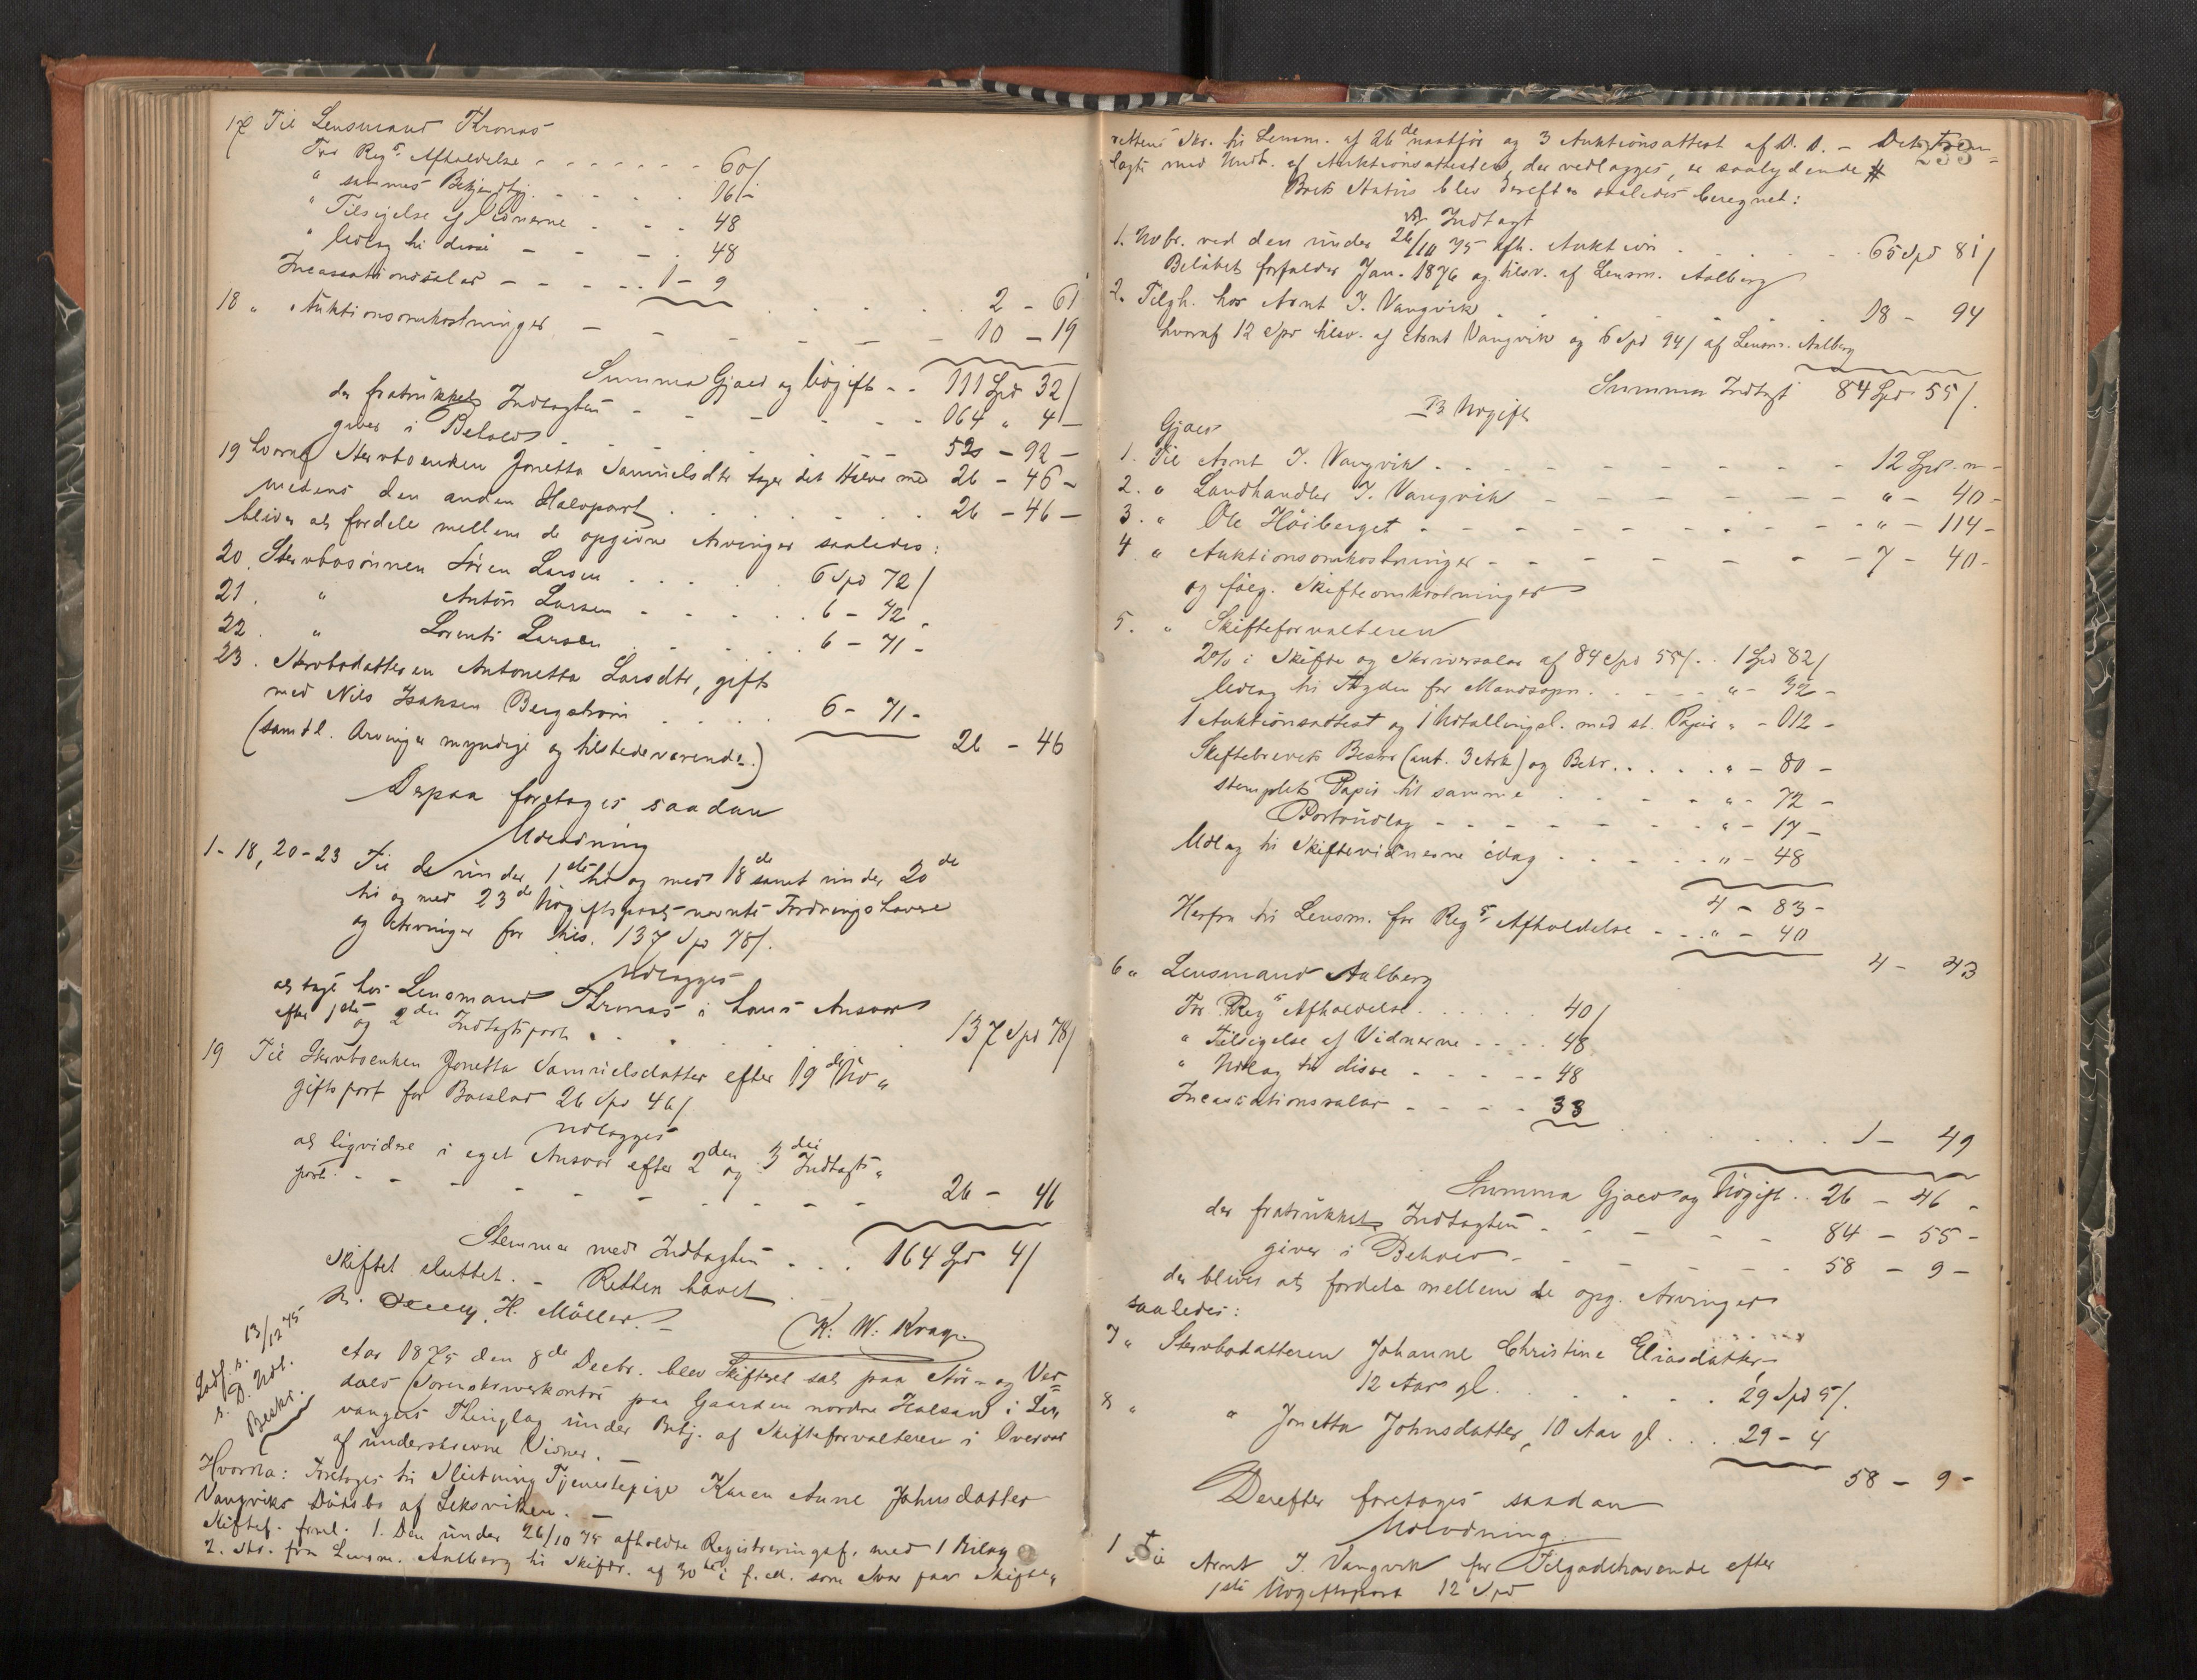 17 Til Lensmand Kronas
For Reg.s Afholdelse - - - - - - - 60/
" sammes Bekjendtgj. - - - - - 16/-
" Tilsigelse af Vidnerne - - - 48
" Udlæg til disse - - - - 48
Incassationssalær - - - - . 1 - 9
2 - 61
18 " Auktionsomkostninger - - - - - 10 - 19
Summa Gjæld og Udgift - - 111 Spd 32/
der fratrukket Indtægten - - - - - - 164 " 4 -
giver i Behold - - - - - - - 52 - 92 -
19 hvoraf Stervboenken Jonetta Samuelsdtr tager det Halve med 26 - 46 -
medens den anden Halvpart . . . . . . . 26 - 46 -
bliver at fordele mellem de opgivne Arvinger saaledes:
20. Stervbosönnen Sören Larsen . . . . . 6 Spd 72/
21. " Anton Larsen - - - - . 6 - 72 -
22. " Lorents Larsen . . . . . 6 - 71 -
23. Stervbodatteren Antonetta Larsdtr, gift
med Nils Isaksen Bergstrøm . . . . 6 - 71 -
(samtl. Arvinger myndige og tilstedeværende.) 26 - 46
Derpaa foretoges saadan
Udlodning
1-18, 20-23 Til de under 1ste til og med 18de samt under 20de
til og med 23de Udgiftspost nævnte Fordringshavere
og Arvinger for tils. 137 Spd 78/.
udlægges
at tage hos Lensmand Kronas i hans Ansvar
efter 1ste og 2den Indtægtspost . . . . . . . 137 Spd 78/
19 Til Stervboenken Jonetta Samuelsdatter efter 19de Ud-
giftspost for Boeslod 26 Spd 46/
udlægges
at ligvidere i eget Ansvar efter 2den og 3die Indtægts-
post. - - - - - - - - - - 26 - 46
Stemmer med Indtægten - . . 164 Spd 4/
Skiftet sluttet. - Retten hævet
H. Möller. -
K. W. Krag
13/12 75
s. D. Udl.
Beskr.
Aar 1875 den 8de Decbr. blev Skifteret sat paa Stör- og Vær-
dals Sorenskriverkontor paa Gaarden nordre Halsan i Le-
vangers Thinglag under Betj. af Skifteforvalteren i Overvær
af underskrevne Vidner. -
Hvorda: Foretoges til Slutning Tjenestepige Karen Anne Johnsdatter
Vangviks Dödsbo af Leksviken. -
Skiftef. freml. 1. Den under 26/10 75 afholdte Registreringsf. med 1 Bilag
2. Skr. fra Lensm. Aalberg til Skiftr. af 30te i f. M. som Svar paa Skifte-
233
rettens Skr. til Lensm. af 26de næstför og 3 Auktionsattest af D. D. - Det Frem-
lagte med Undt. af Auktionsattesten, der vedlægges, er saalydende #
Boets Status blev derefter saaledes beregnet:
A Indtægt
1. Udbr. ved den under 26/10 75 afh. Auktion . . . . . . 65 Spd 81/
Belöbet forfalder Jan. 1876 og tilsv. af Lensm. Aalberg
2. Tilgh. hos Arnt J. Vangvik . . . . . . 18 - 94
hvoraf 12 Spd tilsv. af Arnt Vangvik og 6 Spd 94/ af Lensm. Aalberg
Summa Indtægt 84 Spd 55/.
B Udgift
Gjæld
1. Til Arnt J. Vangvik - - - - - - - - - 12 Spd. " -
2. " Landhandler J. Vangvik - - - - - - - " - 40 -
3. " Ole Höiberget - - - - - - - - - " - 114 -
4 " Auktionsomkostninger - - - - - - - 7 - 40 -
og fölg. Skifteomkostninger
5. " Skifteforvalteren
2% i Skifte og Skriversalær af 84 Spd 55/. . 1 Spd 82/
Udlæg til Fogden for Mandsopn. . - - - - " - 92 -
1 Auktionsattest og 1 Udtallingsl. med st. Papir " - 112 -
Skiftebrevets Beskr (ant. 3 Ark) og Bekr. . . . . . " - 80 -
stemplet Papir til samme . . . . - " - 72 -
Portoudlæg - - - - - - - - " - 17 -
Udlæg til Skiftevidnerne idag . . . - . . " - 48
4 - 83 -
Herfra til Lensm. for Reg.s Afholdelse - - . " - 40
4 - 43
6 " Lensmand Aalberg
For Reg.s Afholdelse . . . . . . . 40/
" Tilsigelse af Vidnerne - - - . 48
" Udlæg til disse - - - - - 48
Incassationssalær - - - - . 33
1 - 49
Summa Gjæld og Udgift . . 26 - 46 -
der fratrukket Indtægten - - - - - - 84 - 55 -
giver i Behold - - - - - - - 58 - 9 -
der bliver at fordele mellem de opg. Arvinger
saaledes:
7 " Stervbodatteren Johanne Christine Eliasdatter,
12 Aar gl. . . . . . . 29 Spd 5/.
8 " " Jonetta Johnsdatter, 10 Aar gl . . . 29 - 4
58 - 9 -
Derefter foretoges saadan
Udlodning
1 Til Arnt J. Vangvik for Tilgodehavende efter
1ste Udgiftspost 12 Spd